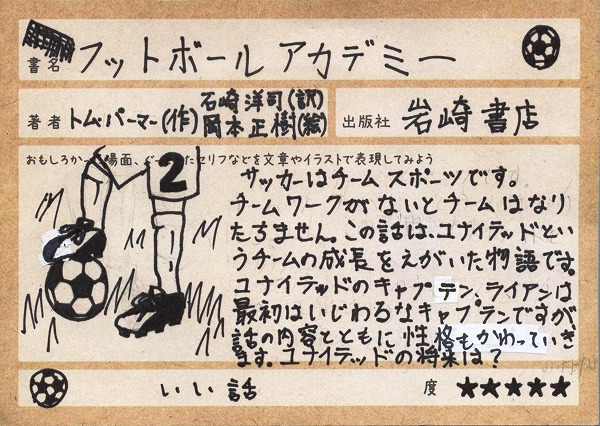 書名 フットボールアカデミー
著者 トム・パーマー(作) 石崎洋司(訳)
岡本正樹(絵)
出版社 岩崎書店
おもしろかっ 場面、 セリフなどを文章やイラストで表現してみよう
2
サッカーはチームスポーツです。
チームワークがないとチームはなり
たちません。この話は、ユナイテッドとい
うチームの成長をえがいた物語です。
ユナイテッドのキャプテン、ライアンは
最初はいじわるなキャプランですが
話の内容とともに性格もかわっていき
ます。ユナイテッドの将来は?
いい話 度 ★★★★★